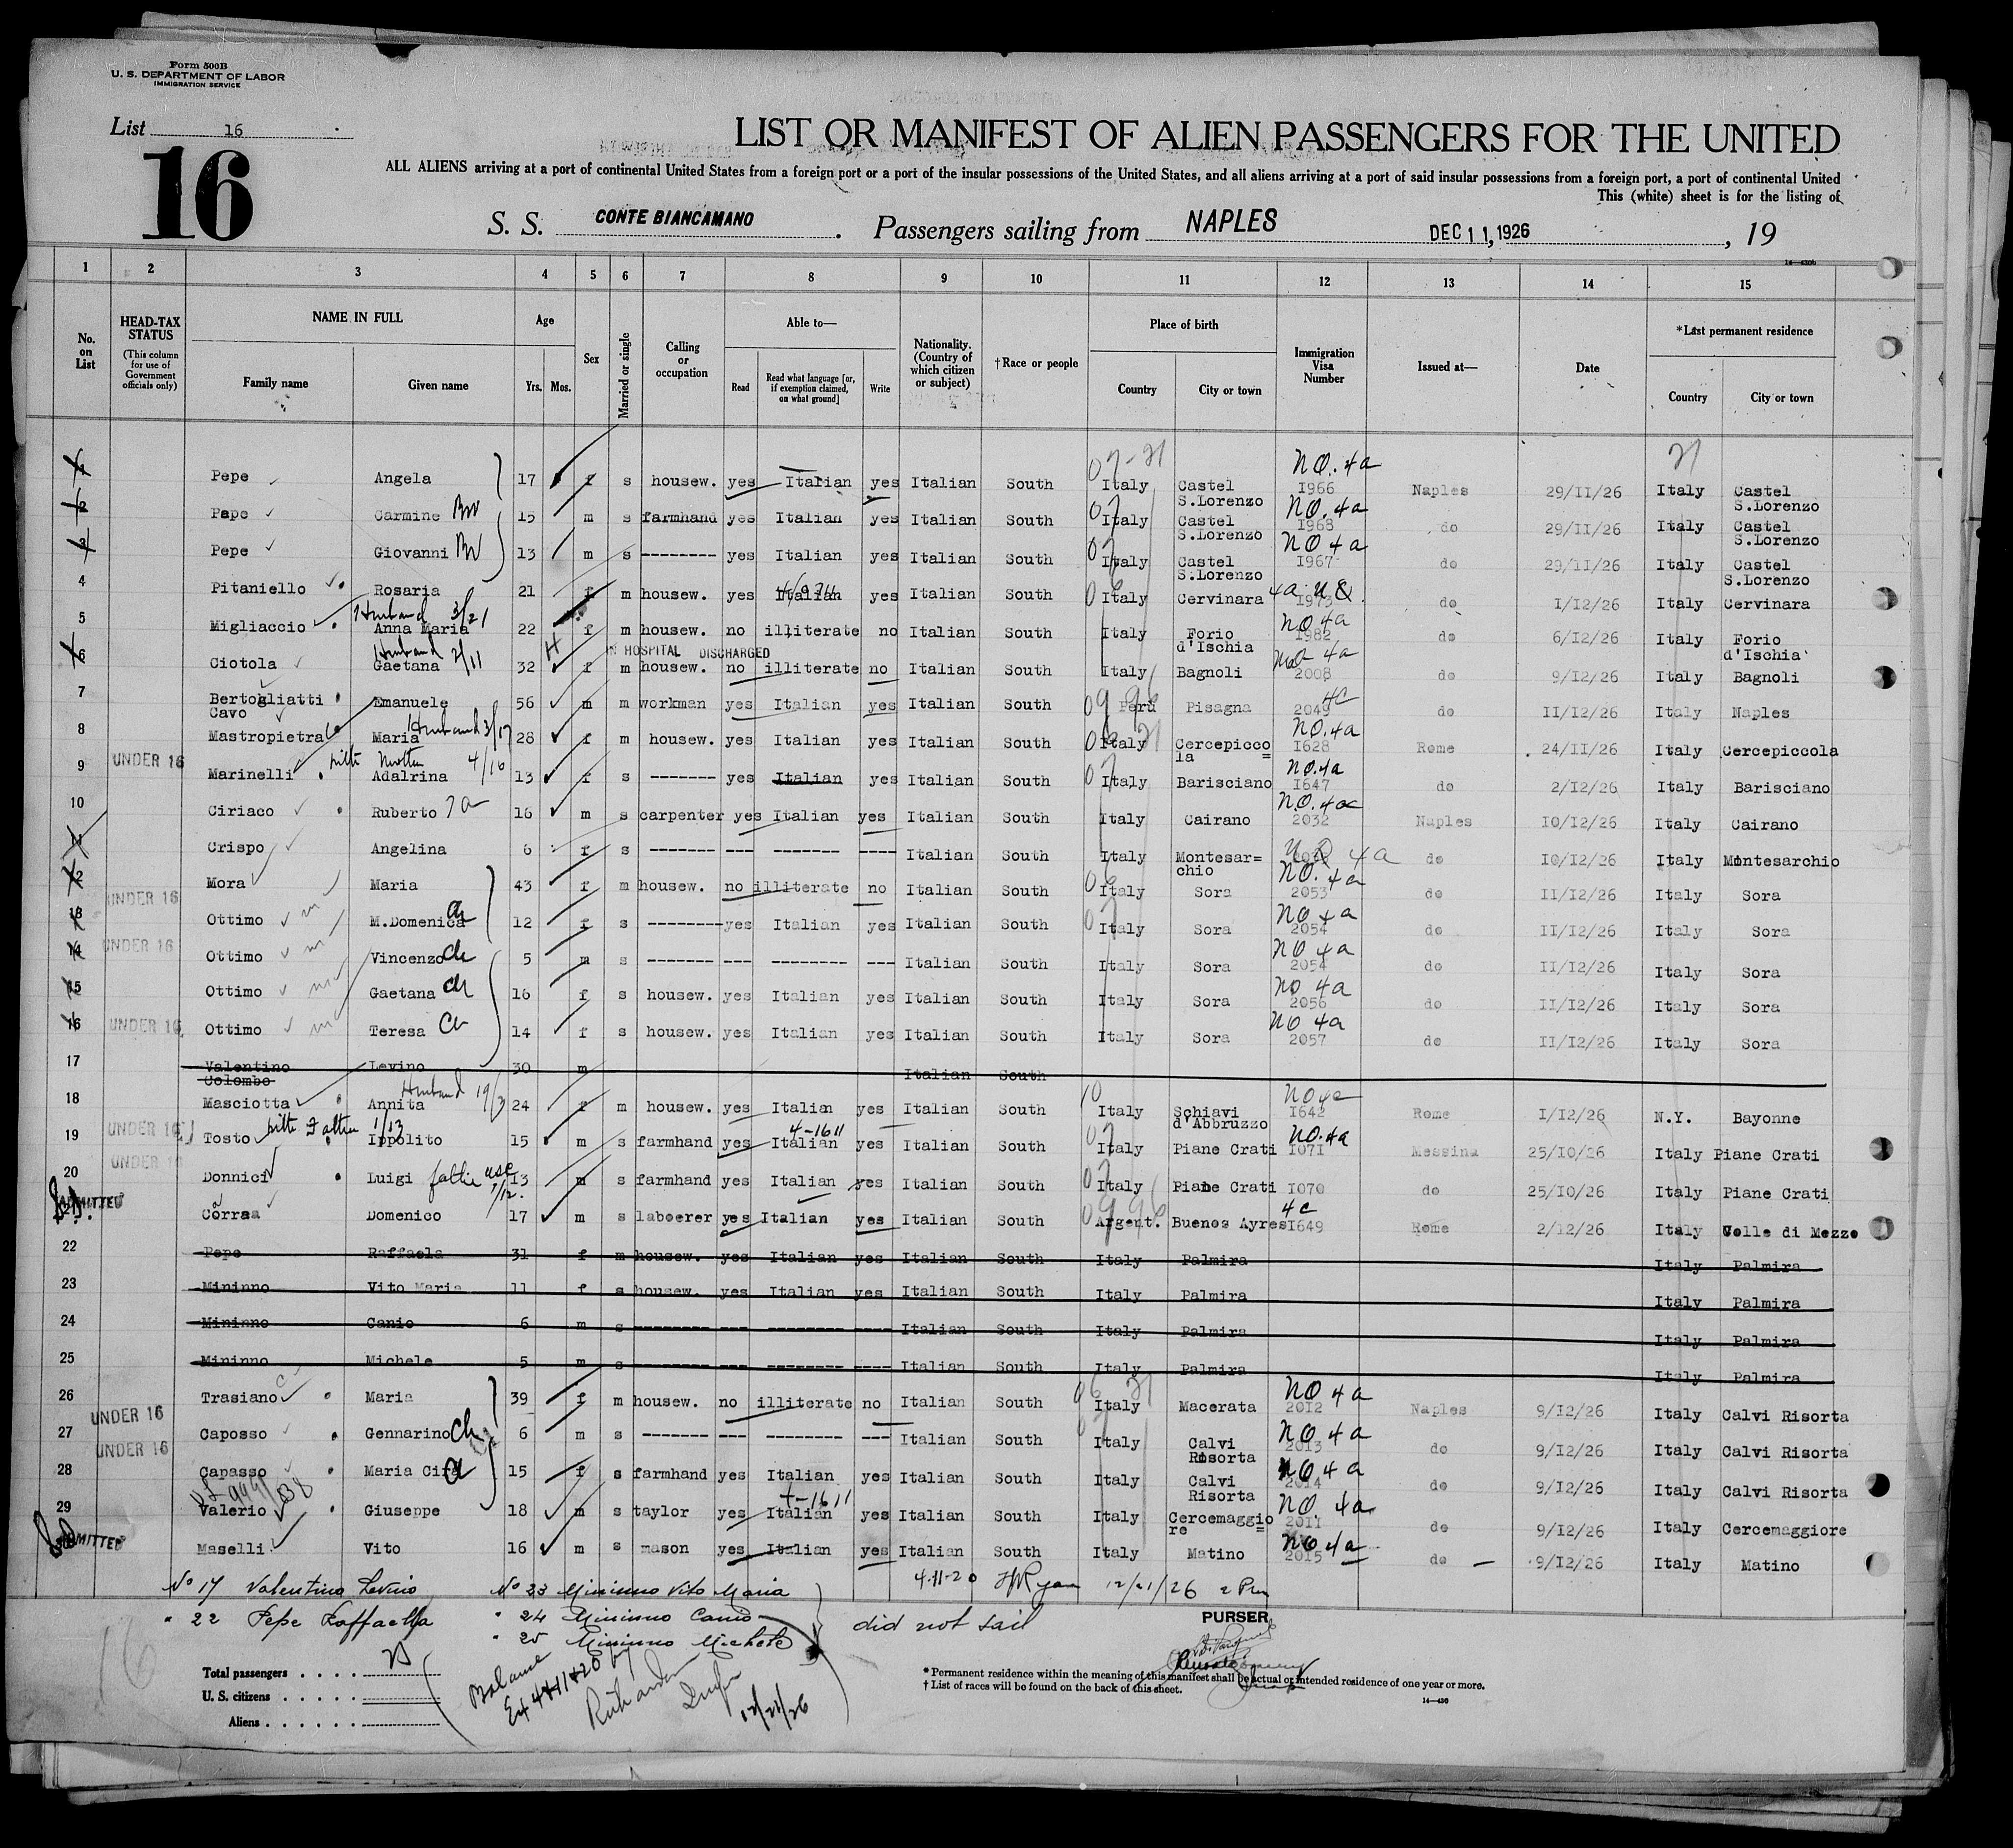 Form 500B
U. S. DEPARTMENT OF LABOR
IMMIGRATION SERVICE
List 16
16
LIST OR MANIFEST OF ALIEN PASSENGERS FOR THE UNITED
ALL ALIENS arriving at a port of continental United States from a foreign port or a port of the insular possessions of the United States, and all aliens arriving at a port of said insular possessions from a foreign port, a port of continental United
This (white) sheet is for the listing of
S. S. CONTE BIANCAMANO. Passengers sailing from NAPLES DEC 11, 1926, 19
14—430b
1 2 3 4 5 6 7 8 9 10 11 12 13 14 15
No. on List HEAD-TAX STATUS (This column for use of Government officials only) NAME IN FULL Family name Given name Age Yrs. Mos. Sex Married or single Calling or occupation Able to— Read Read what language [or, if exemption claimed, on what ground] Write Nationality. (Country of which citizen or subject) †Race or people Place of birth Country City or town Immigration Visa Number Issued at— Date *Last permanent residence Country City or town
1 Pepe Angela 17 f s housew. yes Italian yes Italian South Italy Castel S.Lorenzo NO. 4a I966 Naples 29/II/26 Italy Castel S.Lorenzo
2 Pepe Carmine 15 m s farmhand yes Italian yes Italian South Italy Castel S.Lorenzo NO. 4a I968 do 29/II/26 Italy Castel S.Lorenzo
3 Pepe Giovanni 13 m s -------- yes Italian yes Italian South Italy Castel S.Lorenzo NO 4a I967 do 29/II/26 Italy Castel S.Lorenzo
4 Pitaniello Rosaria 21 f m housew. yes Italian yes Italian South Italy Cervinara 4a do I/I2/26 Italy Cervinara
5 Migliaccio Husband 3/21 Anna Maria 22 f m housew. no illiterate no Italian South Italy Forio d'Ischia NO 4a I982 do 6/I2/26 Italy Forio d'Ischia
IN HOSPITAL DISCHARGED
6 Ciotola Husband 2/11 Gaetana 32 f m housew. no illiterate no Italian South Italy Bagnoli 4a 2008 do 9/I2/26 Italy Bagnoli
7 Bertogliatti Cavo Emanuele 56 m m workman yes Italian yes Italian South Peru Pisagna 4c 2049 do II/I2/26 Italy Naples
8 Mastropietra Maria Husband 3/17 28 f m housew. yes Italian yes Italian South Italy Cercepiccola NO. 4a I628 Rome 24/II/26 Italy Cercepiccola
UNDER 16
9 Marinelli Adalrina 4/16 13 f s ------- yes Italian yes Italian South Italy Barisciano NO. 4a I647 do 2/I2/26 Italy Barisciano
10 Ciriaco Ruberto 16 m s carpenter yes Italian yes Italian South Italy Cairano N.O. 4a 2032 Naples I0/I2/26 Italy Cairano
11 Crispo Angelina 6 f s ------- --- ------- ---- Italian South Italy Montesar=chio 4a do I0/I2/26 Italy Montesarchio
12 Mora Maria 43 f m housew. no illiterate no Italian South Italy Sora NO. 4a 2053 do II/I2/26 Italy Sora
UNDER 16
13 Ottimo M.Domenica 12 f s -------- yes Italian yes Italian South Italy Sora NO 4a 2054 do II/I2/26 Italy Sora
UNDER 16
14 Ottimo Vincenzo ch 5 m s ------- --- -------- --- Italian South Italy Sora NO 4a 2054 do II/I2/26 Italy Sora
15 Ottimo Gaetana ch 16 f s housew. yes Italian yes Italian South Italy Sora NO 4a 2056 do II/I2/26 Italy Sora
16 UNDER 16 Ottimo Teresa ch 14 f s housew. yes Italian yes Italian South Italy Sora NO 4a 2057 do II/I2/26 Italy Sora
17 Valentino Colombo Levino 30 m Italian South
18 Masciotta Husband Annita 24 f m housew. yes Italian yes Italian South Italy Schiavi d'Abbruzzo I642 Rome I/I2/26 N.Y. Bayonne
19 UNDER 16 Tosto Father 1/13 Ippolito 15 m s farmhand yes 4-1611 Italian yes Italian South Italy Piane Crati NO. 4a I071 Messina 25/I0/26 Italy Piane Crati
UNDER 16
20 Donnici Luigi 13 m s farmhand yes Italian yes Italian South Italy Piane Crati I070 do 25/I0/26 Italy Piane Crati
ADMITTED
21 Corraa Domenico 17 m s laboerer yes Italian yes Italian South Argent. Buenos Ayres 4c I649 Rome 2/I2/26 Italy Colle di Mezzo
22 Pepe Raffaela 31 f m housew. yes Italian yes Italian South Italy Palmira Italy Palmira
23 Mininno Vito Maria 11 f s housew. yes Italian yes Italian South Italy Palmira Italy Palmira
24 Mininno Canio 6 m s -------- --- -------- ---- Italian South Italy Palmira Italy Palmira
25 Mininno Michele 5 m s -------- --- -------- ---- Italian South Italy Palmira Italy Palmira
26 Trasiano Maria 39 f m housew. no illiterate no Italian South Italy Macerata NO 4a 2012 Naples 9/I2/26 Italy Calvi Risorta
UNDER 16
27 Caposso Gennarino ch 6 m s ------- --- -------- --- Italian South Italy Calvi Risorta NO 4a 2013 do 9/I2/26 Italy Calvi Risorta
UNDER 16
28 Capasso Maria 15 f s farmhand yes Italian yes Italian South Italy Calvi Risorta NO 4a 2014 do 9/I2/26 Italy Calvi Risorta
29 Valerio Giuseppe 18 m s taylor yes Italian yes Italian South Italy Cercemaggiore NO. 4a 2011 do 9/I2/26 Italy Cercemaggiore
ADMITTED
Maselli Vito 16 m s mason yes Italian yes Italian South Italy Matino NO 4a 2015 do 9/I2/26 Italy Matino
No 17 Valentino Levino No 23 Mininno Vito Maria 4-11-20 12/21/26 2 Pm
" 22 Pepe Raffaella " 24 Mininno Canio did not sail PURSER
" 25 Mininno Michele
Total passengers
U. S. citizens
Aliens
Balance
12/21/26
* Permanent residence within the meaning of this manifest shall be actual or intended residence of one year or more.
† List of races will be found on the back of this sheet.
14—430
16